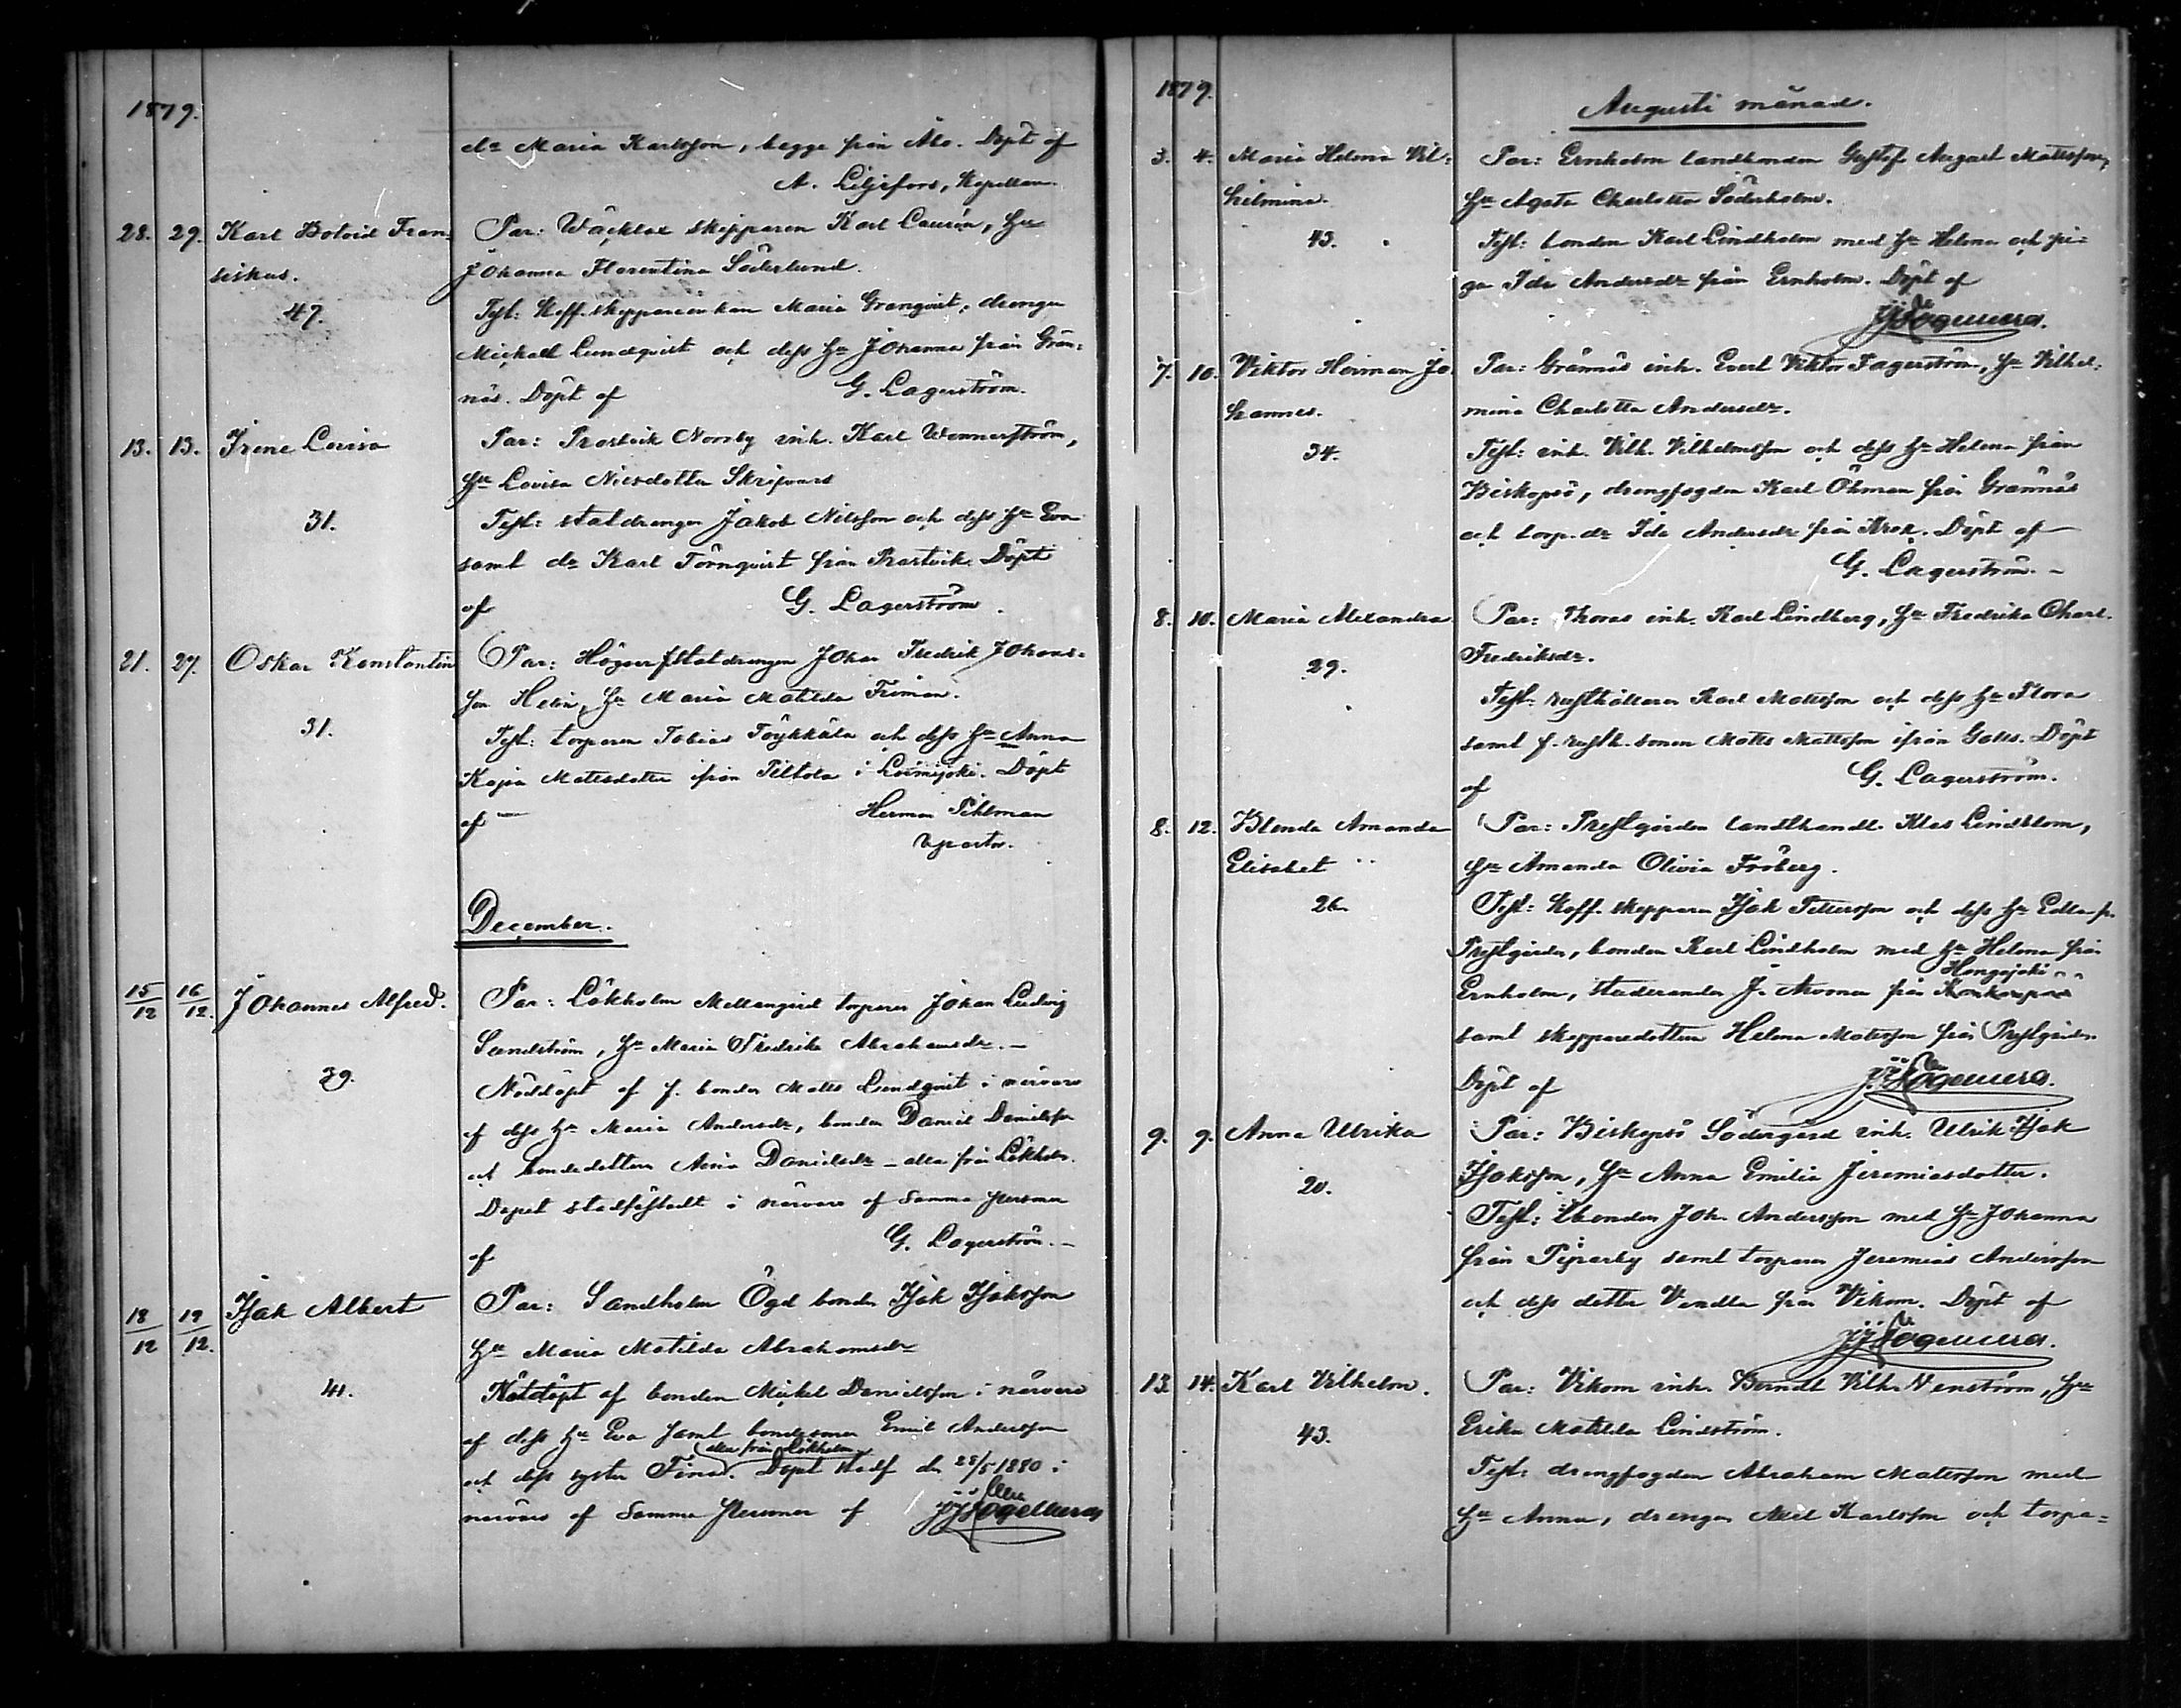 1879.
dr Maria Karlsson, begge från Åbo. Döpt af
A. Liljefors, Kapellan.
28. 29. Karl Botvid Fran- Par: Wäcklax skepparen Karl Laurén, Hu
siskus. Johanna Florentina Söderlund.
47. Test: Koff. skepparenkan Maria Granqvist, drengen
Mickael Lundqvist och dess Hu Johanna från Grän-
näs. Döpt af G. Lagerström.
13. 13. Irene Lovisa Par: Prostvik Norrby inh. Karl Wennerström,
Hu Lovisa Nilsdotter Skrifvars
31. Test: statdrengen Jakob Nilsson och dess Hu Eva
samt dr Karl Törnqvist från Prostvik. Döpt
af G. Lagerström.
21. 27. Oskar Konstantin Par: Högsar statdrengen Johan Fredrik Johans-
son Helin, Hu Maria Matilda Friman.
31. Test: torparen Tobias Töykkälä och dess Hu Anna
Kajsa Matsdotter ifrån Piltola i Loimijoki. Döpt
af Herman Pihlman
v. pastor.
December.
15/12 16/12. Johannes Alfred. Par: Lökholm Mellangård torparen Johan Ludvig
Sundström, Hu Maria Fredrika Abrahamsdr.
39. Nöddöpt af f. bonden Matts Lundqvist i närvaro
af dess Hu Maria Andersdr, bonden Daniel Danielsson
och bondedottren Anna Danielsdr - alla från Lökholm.
Dopet stadfästadt i närvaro af samma personer
af G. Lagerström.
18/12 19/12. Isak Albert Par: Sandholm Ögd bonden Isak Isaksson
Hu Maria Matilda Abrahamsdr
41. Nöddöpt af bonden Mickel Danielsson i närvaro
af dess Hu Eva samt bondesonen Emil Andersson
alla från Lökholm
och dess syster Fina. Dopet stadf den 28/5 1880 i
närvaro af samma personer af
1879.
Augusti månad.
3. 4. Maria Helena Vil- Par: Ernholm landbonden Gustaf August Mattsson,
helmina. Hu Agata Charlotta Söderholm.
43. Test: bonden Karl Lindholm med Hu Helena och pi-
ga Ida Andersdr från Ernholm. Döpt af
7. 10. Viktor Herman Jo- Par: Grännäs inh. Evert Viktor Fagerström, Hu Vilhel-
hannes. mina Charlotta Andersdr.
34. Test: inh. Vilh. Vilhelmsson och dess Hu Helena från
Biskopsö, drengfogden Karl Öhman från Grännäs
och torp. dr Ida Andersdr från Krok. Döpt af
G. Lagerström.
8. 10. Maria Alexandra Par: Thoras inh. Karl Lindberg, Hu Fredrika Charl.
29. Fredriksdr.
Test: rusthållaren Karl Matsson och dess Hu Flora
samt f. rusth. sonen Matts Mattsson ifrån Galts. Döpt
af G. Lagerström.
8. 12. Blenda Amanda Par: Prestgården landthandl. Klas Lindblom,
Elisabet Hu Amanda Olivia Fröberg.
26. Test: Koff. skepparen Isak Pettersson och dess Hu Edla fr.
Prestgården, bonden Karl Lindholm med Hu Helena från
Hongojoki
Ernholm, studeranden J. från
samt skepparedottren Helena Matsson från Prestgården
Döpt af
9. 9. Anna Ulrika Par: Biskopsö Södergård inh. Ulrik Isak
20. Isaksson, Hu Anna Emilia Jeremiasdotter.
Test: bonden Joh. Andersson med Hu Johanna
från Piparby samt torparen Jeremias Andersson
och dess dotter Vendla från Vikom. Döpt af
13. 14. Karl Vilhelm. Par: Vikom inh. Berndt Vilh. Venström, Hu
43. Erika Matilda Lindström.
Test: drengfogden Abraham Matsson med
Hu Anna, drengen Axel Karlsson och torpa-